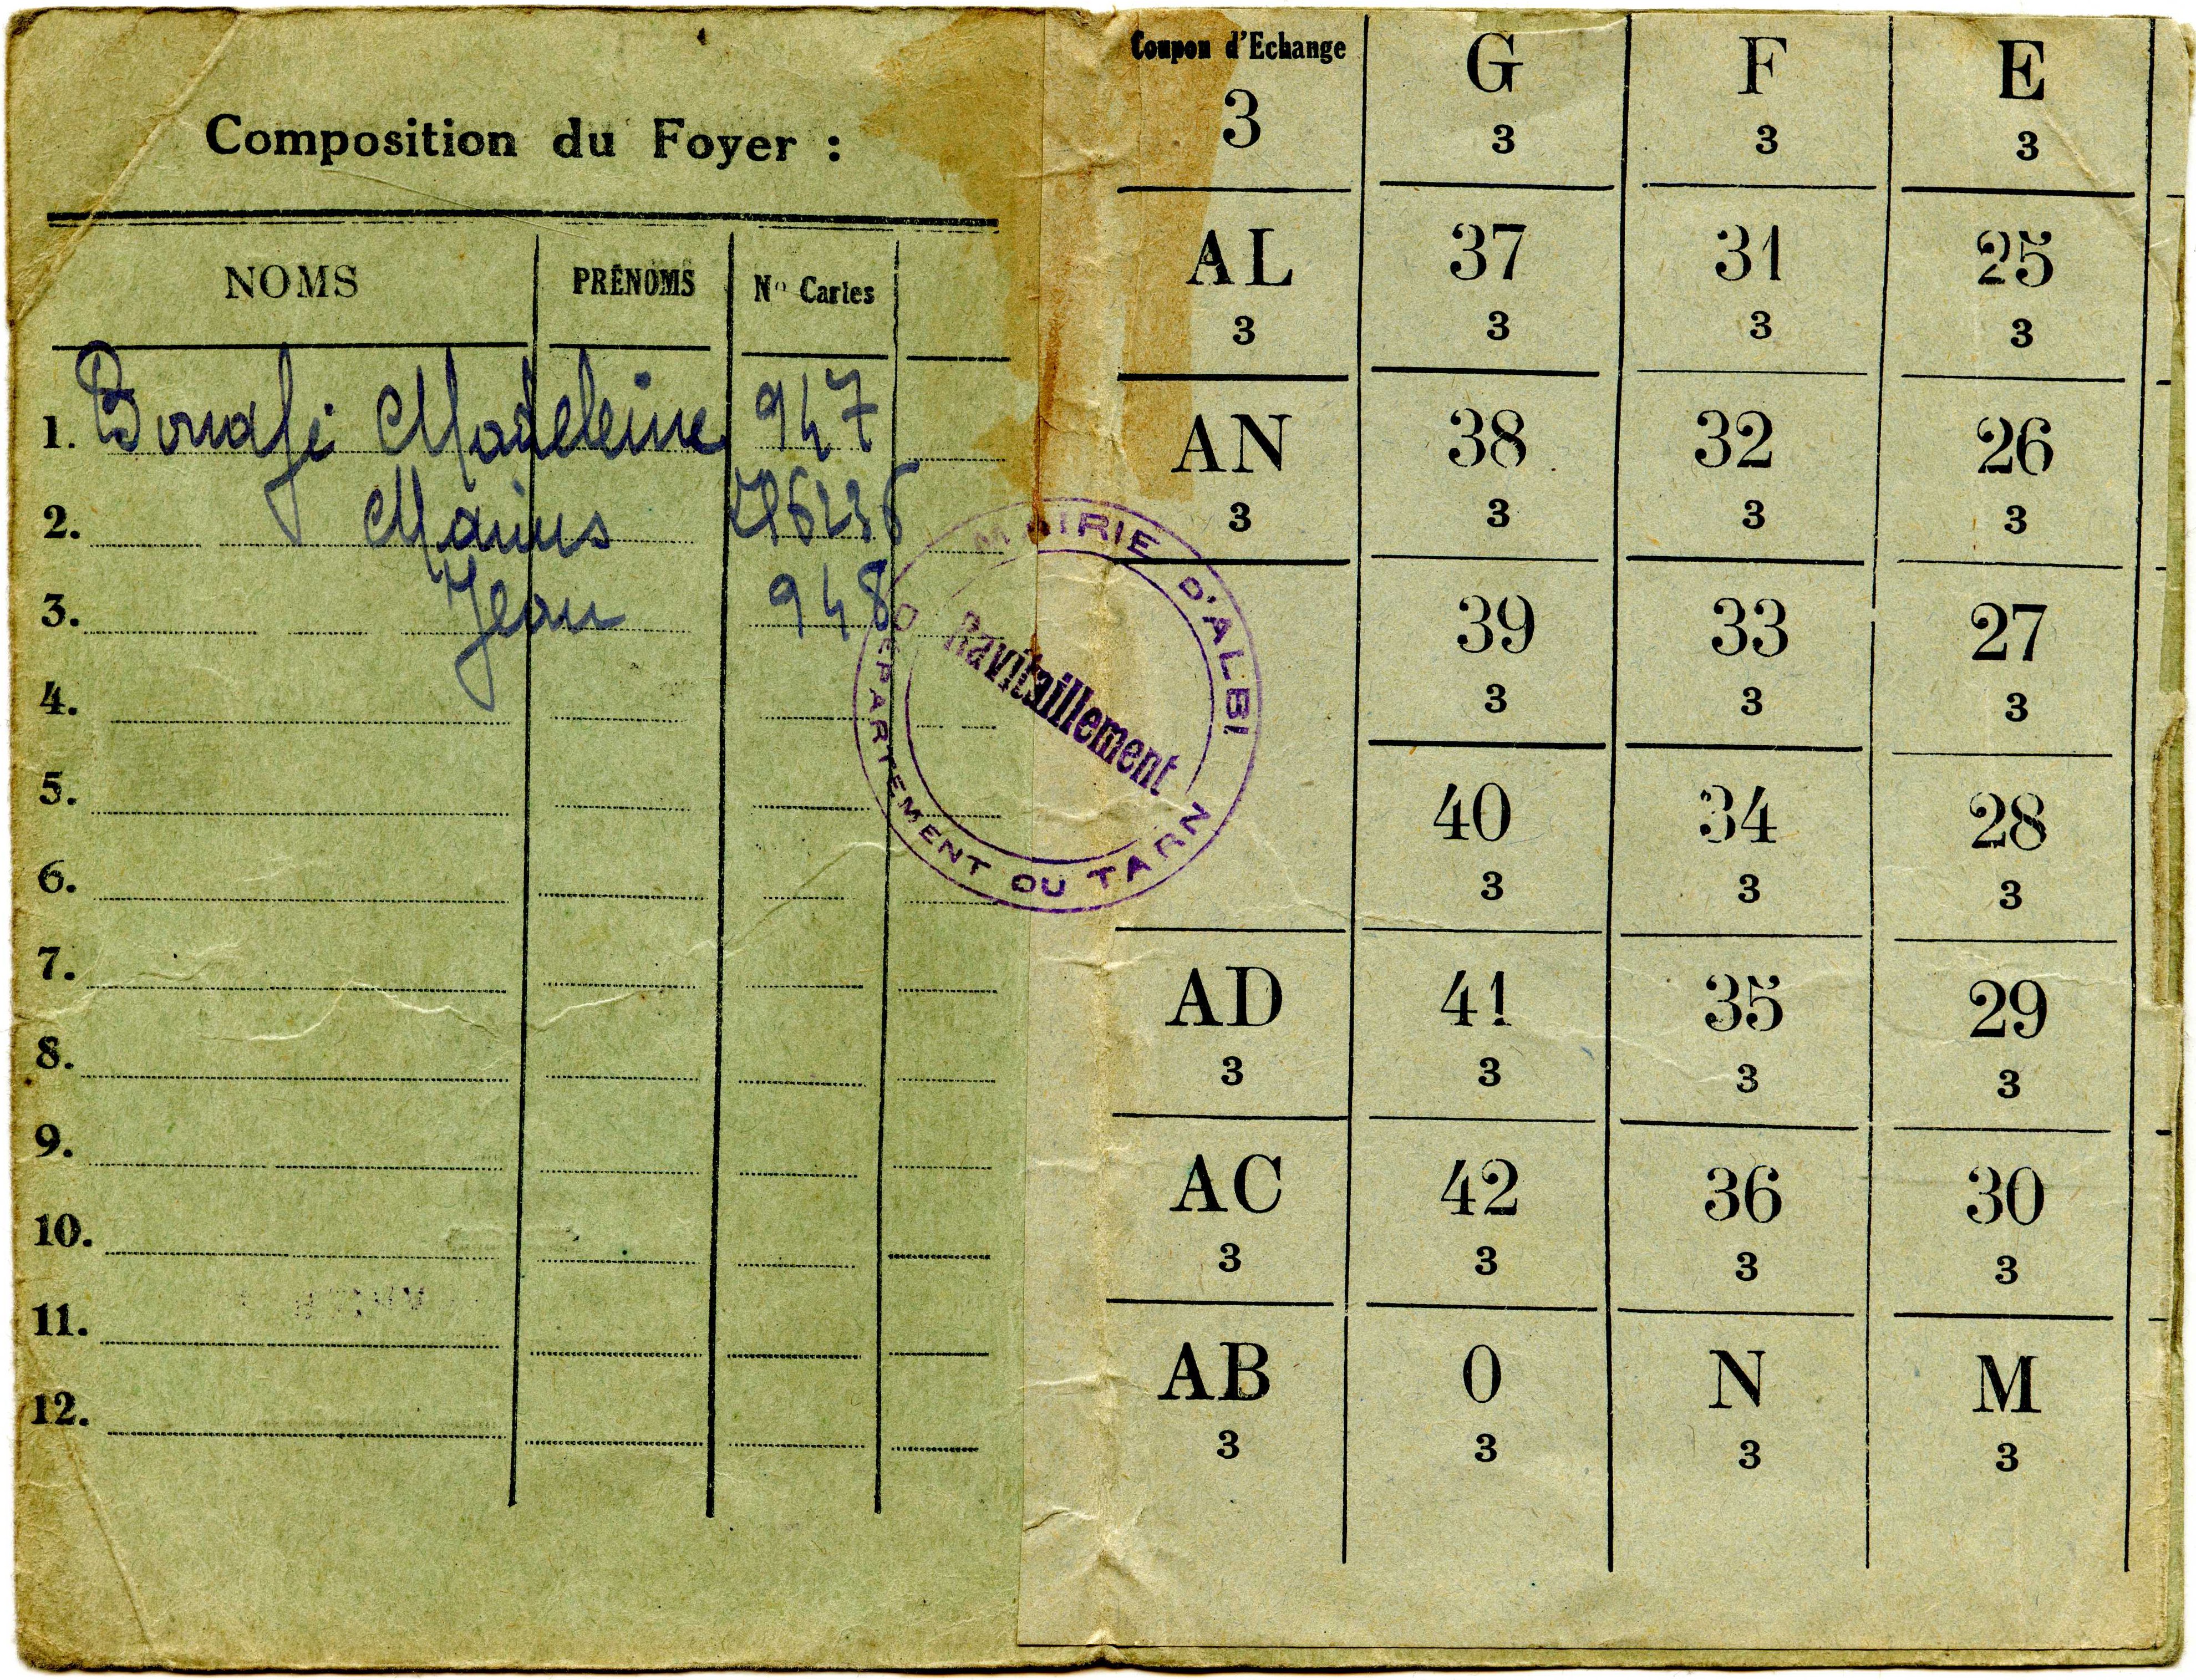 Composition du Foyer :
NOMS PRÉNOMS Nº Cartes
1. Madeleine 947
2. Marius
3. Jean 948
4.
5.
6.
7.
8.
9.
10.
11.
12.
MAIRIE D'ALBI
Ravitaillement
DÉPARTEMENT DU TARN
Coupon d'Echange G F E
3 3 3 3
AL 37 31 25
3 3 3 3
AN 38 32 26
3 3 3 3
39 33 27
3 3 3
40 34 28
3 3 3
AD 41 35 29
3 3 3 3
AC 42 36 30
3 3 3 3
AB O N M
3 3 3 3